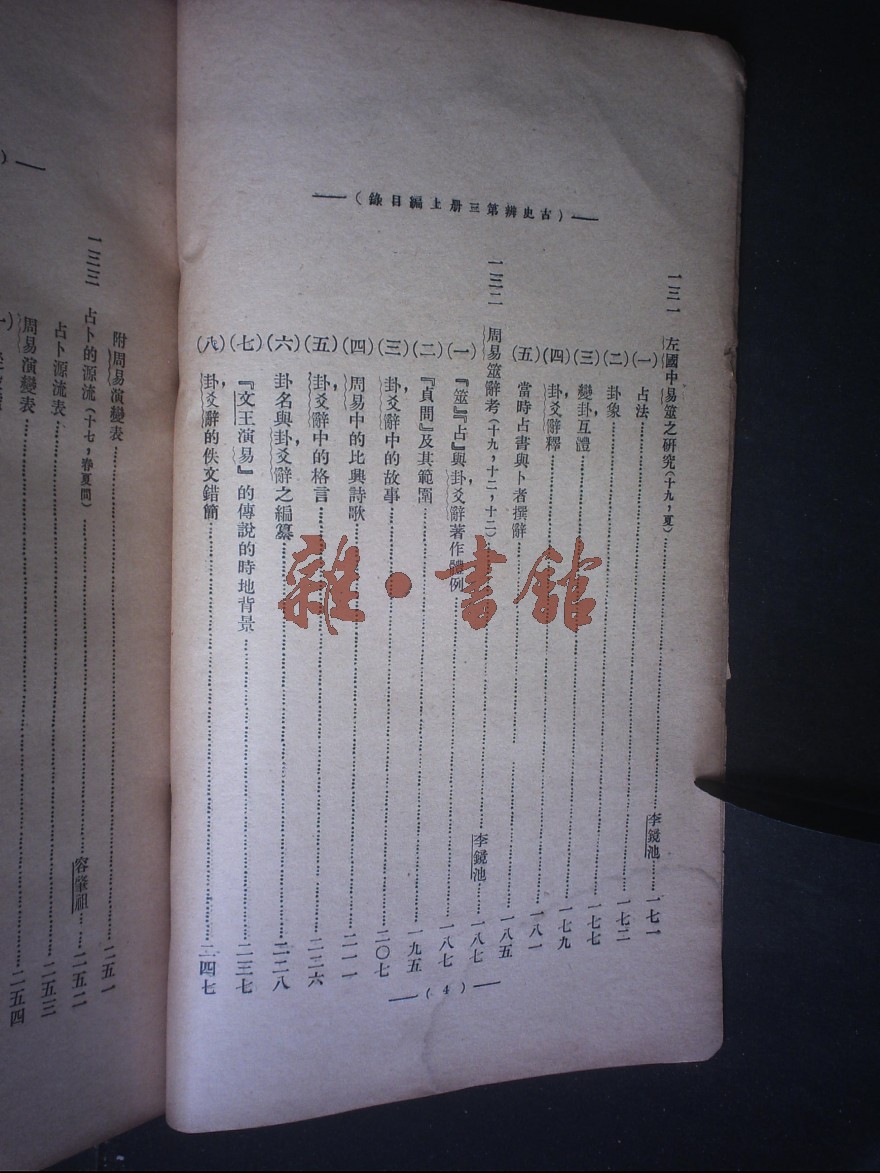 古史辨第三册上編目錄
一三一 左國中易筮之研究(十九,夏) 李鏡池 一七一
(一) 占法 一七一
(二) 卦象 一七二
(三) 變卦互體 一七七
(四) 卦,爻辭釋 一七九
(五) 當時占書與卜者撰辭 一八一
一三二 周易筮辭考(十九,十二,十二) 李鏡池 一八七
(一) 『筮』『占』與卦,爻辭著作體例 一八七
(二) 『貞問』及其範圍 一九五
(三) 卦,爻辭中的故事 二〇七
(四) 周易中的比興詩歌 二一一
(五) 卦,爻辭中的格言 二二六
(六) 卦名與卦,爻辭之編纂 二二八
(七) 『文王演易』的傳說的時地背景 二三七
(八) 卦,爻辭的佚文錯簡 二四七
(4)
附周易演變表 二五一
一三三 占卜的源流(十七,春夏間) 容肇祖 二五二
占卜源流表 二五三
周易演變表 二五四
雜·書館